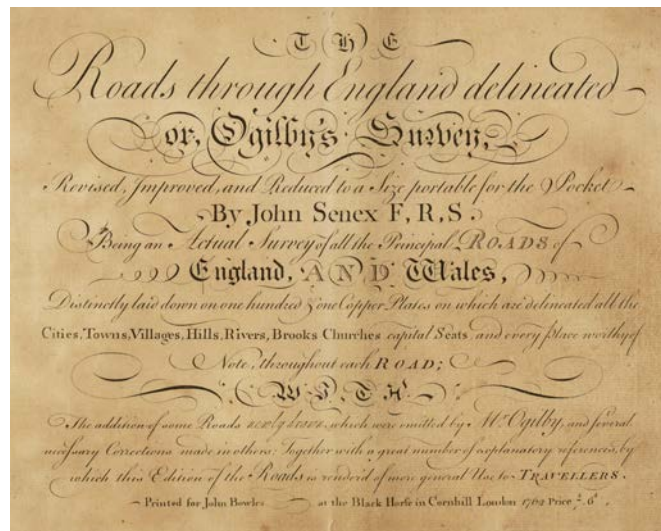 THE
Roads through England delineated
or, Ogilby's Survey,
Revised, Improved, and Reduced to a Size portable for the Pocket
By John Senex F,R,S.
Being an Actual Survey of all the Principal ROADS of
England, AND Wales,
Distinctly laid down on one hundred & one Copper Plates on which are delineated all the
Cities, Towns, Villages, Hills, Rivers, Brooks Churches capital Seats and every place worthy of
Note, throughout each ROAD;
WITH
The addition of some Roads newly drawn, which were omitted by Mr. Ogilby, and several
necessary Corrections made in others: Together with a great number of explanatory references, by
which this Edition of the Roads is render'd of more general Use to TRAVELLERS.
Printed for John Bowles at the Black Horse in Cornhill London Price